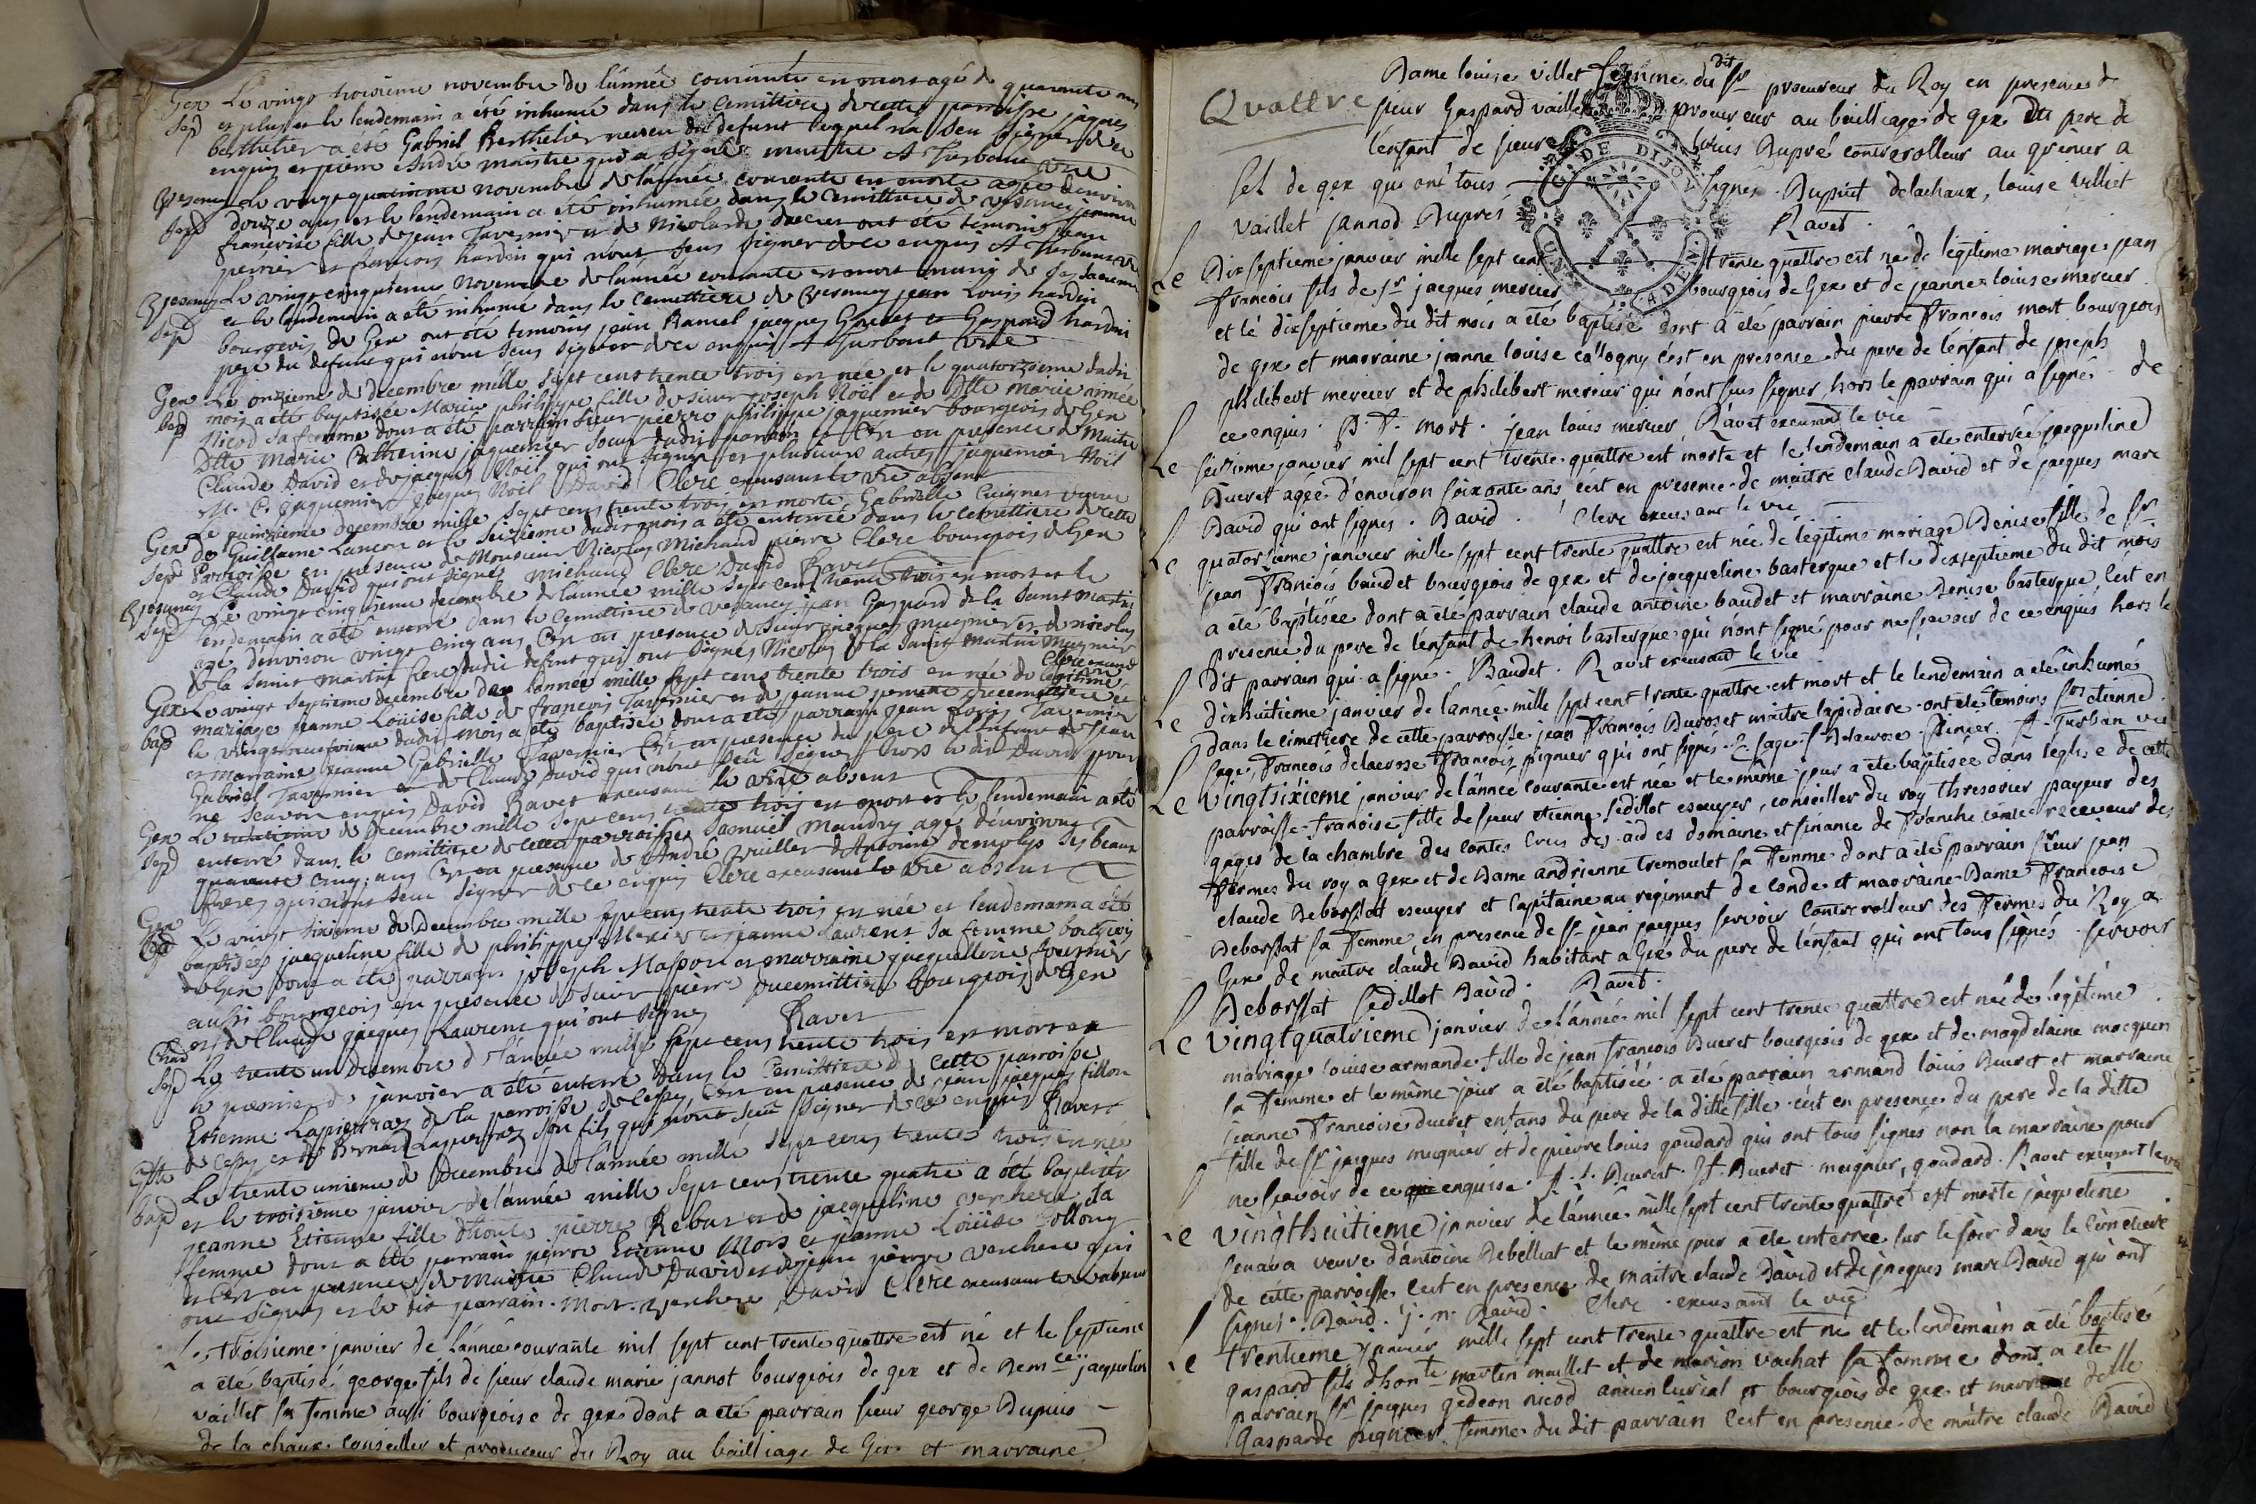 Gex Le vingt troisieme novembre de l'année courante est mort agé de quarante ans
Sep et plus et le lendemain a été inhumé dans le cemittiere de cette parroisse jaques
berthelier a été Gabriel Berthelier neveu du defunt lequel na sceu signer de ce
enquis et pierre André maistre qui a signé maistre A Turbane vire
Vesancy Le vingt quatrieme novembre de l'année courante est morte agée denviron
Sep douze ans et le lendemain a été inhumée dans le cemittiere de vesancy jeanne
francoise fille de jean Tavernier et de Nicolarde ont été temoins jean
perrier et francois hardin qui n'ont sceu signer de ce enquis A Turbane vire
Vesancy Le vingt cinquieme novembre de l'année courante est mort muni de ses sacrems
Sep et le lendemain a été inhumé dans le cemittiere de Vesancy jean Louis hardin
bourgeois de Gex ont été temoins jean Ramel jacques et Gaspard hardin
pere du defunt qui n'ont sceu signer de ce enquis A Turbane vire
Gex Le onzieme de decembre mille sept cens trente trois est née et le quatorzieme dudit
bap mois a été baptisée Marie philippe fille de sieur joseph Noël et de Dlle Marie aimée
Nicod sa femme dont a été parrain sieur pierre philippe jaquemier bourgeois de Gex
Dlle Marie Catherine jaquemier soeur dudit parrain et c'est en presence de Maitre
Claude David et de jacques Noël qui ont signés et plusieurs autres jaquemier Noël
M. C. jaquemier jacques Noël David Clerc excusant le vre absent
Gex Le quinzieme decembre mille sept cens trente trois est morte Gabrielle Cuignet veuve
de Guillaume Lancon et le seizieme dudit mois a été enterrée dans le cemittiere de cette
Sep Parroisse en presence de Monsieur Nicolas Michaud pierre Clerc bourgeois de Gex
et Claude David qui ont signés Michaud Clerc David Ravet
Vesancy Le vingt cinquieme decembre de l'année mille sept cens trente trois est mort et le
Sep endemain a été enterré dans le cemittiere de vesancy jean Gaspard de la Saint Martin
agé d'environ vingt cinq ans c'est en presence de sieur jacques mugnier et de nicolas
de la saint martin frere dudit defunt qui ont signés Nicolas de la saint martin Mugnier
Clerc excusant
Gex Le vingt septieme decembre de l'année mille sept cens trente trois est née de legitime
mariage jeanne Louise fille de francois Tavernier et de jeanne
bap le vingt neufvieme dudit mois a été baptisée dont a été parrain jean Louis Tavernier
et marraine jeanne Gabrielle Tavernier c'est en presence du pere de l'enfant de
Gabriel Tavernier et de Claude David qui n'ont sceu signer hors le dit David pour
ne scavoir enquis David Ravet excusant le vire absent
Gex Le de decembre mille sept cens trente trois est mort et le lendemain a été
Sep enterré dans le cemittiere de cette parroisse Samuel Maudry agé denviron
quarante cinq ans c'est en presence de André vuillet d'Antoine ses beaux
freres qui n'ont sceu signer de ce enquis Clerc excusant le vire absent
Gex Le vingt sixieme de Decembre mille sept cens trente trois est née et lendemain a été
bap baptisée jacqueline fille de philippe et jeanne Laurent sa femme bourgeois
de Gex dont a été parrain joseph Maspon et marraine jacquelline fournier
aussi bourgeois en presence de sieur pierre Ducemittiere bourgeois de Gex
et de Claude jacques Laurent qui ont signés Ravet
Le trente un decembre de l'année mille sept cens trente trois est mort et
Sep le premier de janvier a été enterré dans le Cemittiere de cette parroisse
Etienne Lapierraz de la parroisse de Cessy c'est en presence de jean jacques fillon
de Cessy et de Bernard Lapierraz son fils qui n'ont sceu signer de ce enquis Ravet
Le trente unieme de Decembre de l'année mille sept cens trente trois est née
bap et le troisieme janvier de l'année mille sept cens trente quatre a été baptisée
jeanne Etienne fille d'honte pierre Rebut et de jacqueline verchere sa
femme dont a été parrain pierre Etienne Mors et jeanne Loüise Collony
et c'est en presence de Maitre Claude David et de jean pierre verchere qui
ont signés et le dit parrain. Mors. verchere David Clerc excusant le vre absent
Le troisieme janvier de l'année courante mil sept cent trente quattre est né et le septieme
a été baptisé george fils de sieur claude marie jannot bourgeois de gex et de Demlle jaqueline
vaillet sa femme aussi bourgeoise de gex dont a été parrain sieur george Dupuis
de la chaux conseiller et procureur du Roy au bailliage de Gex et marraine
Dame louise villet femme du dit Sr procureur du Roy en presence de
Quattre sieur Gaspard vaillet procureur au bailliage de gex Du pere de
l'enfant de sieur louis Dupré controrolleur au grenier a
sel de gex qui ont tous signés. Dupuit delachaux, louise villiet
vaillet jannod Duprés Ravet.
DE DIJON
Le Dix septieme janvier mille sept cent trente quattre est né de legitime mariage jean
francois fils de sr jacques mercier bourgeois de Gex et de jeanne louise mercier
et le dixseptieme du dit mois a été baptisé dont a été parrain pierre francois mort bourgeois
de gex et marraine jeanne louise callogny c'est en presence du pere de l'enfant de joseph
philibert mercier et de philibert mercier qui n'ont sus signer, hors le parrain qui a signé de
ce enquis. P. F. mort. jean louis mercier Ravet excusant le vie
Le seizieme janvier mil sept cent trente quattre est morte et le lendemain a été enterrée jaqueline
Dueret agée d'environ soixante ans c'est en presence de maitre claude David et de jacques marc
David qui ont signés. David. Clerc excusant le vie
Le quatorzieme janvier mille sept cent trente quattre est née de legitime mariage Denise fille de Sr
jean francois baudet bourgeois de gex et de jacqueline basterque et le dixseptieme du dit mois
a été baptisée dont a été parrain claude antoine baudet et marraine Denise basterque, c'est en
presence du pere de l'enfant de henri basterque qui n'ont signé pour ne scavoir de ce enquis hors le
dit parrain qui a signé. Baudet. Ravet excusant le vie
Le dixhuitieme janvier de l'année mille sept cent trente quattre est mort et le lendemain a été inhumé
dans le cimetiere de cette parroisse jean francois Duroset maitre lapidaire ont été temoins Srs etienne
sage, francois delacrose francois pignier qui ont signés. E. sage. f Delacrose. Pinier. A. Turban vie
Le vingtsixieme janvier de l'année courante est née et le même jour a été baptisée dans l'eglise de cette
parroisse. francoise fille de sieur etienne sedillot escuyer, conseiller du roy thresorier payeur des
gages de la chambre des contes Cour des aides domaine et finance de franche comte receveur des
fermes du roy a gex et de Dame andrienne tremoulet sa femme dont a été parrain sieur jean
claude Deborssat escuyer et Capitaine au regiment de conde et marraine Dame francoise
Deborssat sa femme, en presence de Sr jean jacques servoir Controrolleur des fermes du Roy a
Gex de maitre claude David habitant a Gex du pere de l'enfant qui ont tous signés. servoir
Deborssat sedillot David. Ravet.
Le vingtquatrieme janvier de l'année mil sept cent trente quattre est née de legitime
mariage louise armande fille de jean francois Dueret bourgeois de gex et de magdelaine macquin
sa femme et le même jour a été baptisée. a été parrain armand louis Dueret et marraine
jeanne francoise dueret enfans du pere de la ditte fille c'est en presence du pere de la ditte
fille de Sr jacques meignier et de pierre louis goudard qui ont tous signés non la marraine pour
ne scavoir de ce enquise. A. L. Dueret. J f. Dueret. meignier, goudard. Ravet excusant le vie
Le vingthuitieme janvier de l'année mille sept cent trente quattre est morte jaqueline
senava veuve d'antoine Debelliat et le même jour a été enterrée sur le soir dans le cimetiere
de cette parroisse c'est en presence de maitre claude David et de jacques marc David qui ont
signés. David. j. m. David. Clerc. excusant le vie
Le trentieme janvier mille sept cent trente quattre est né et le lendemain a été baptisé
gaspard fils d'honte martin maillet et de marion vachat sa femme dont a été
parrain Sr jacques gedeon nicod ancien curial et bourgeois de gex et marraine delle
Gasparde pignier femme du dit parrain c'est en presence de maitre claude David